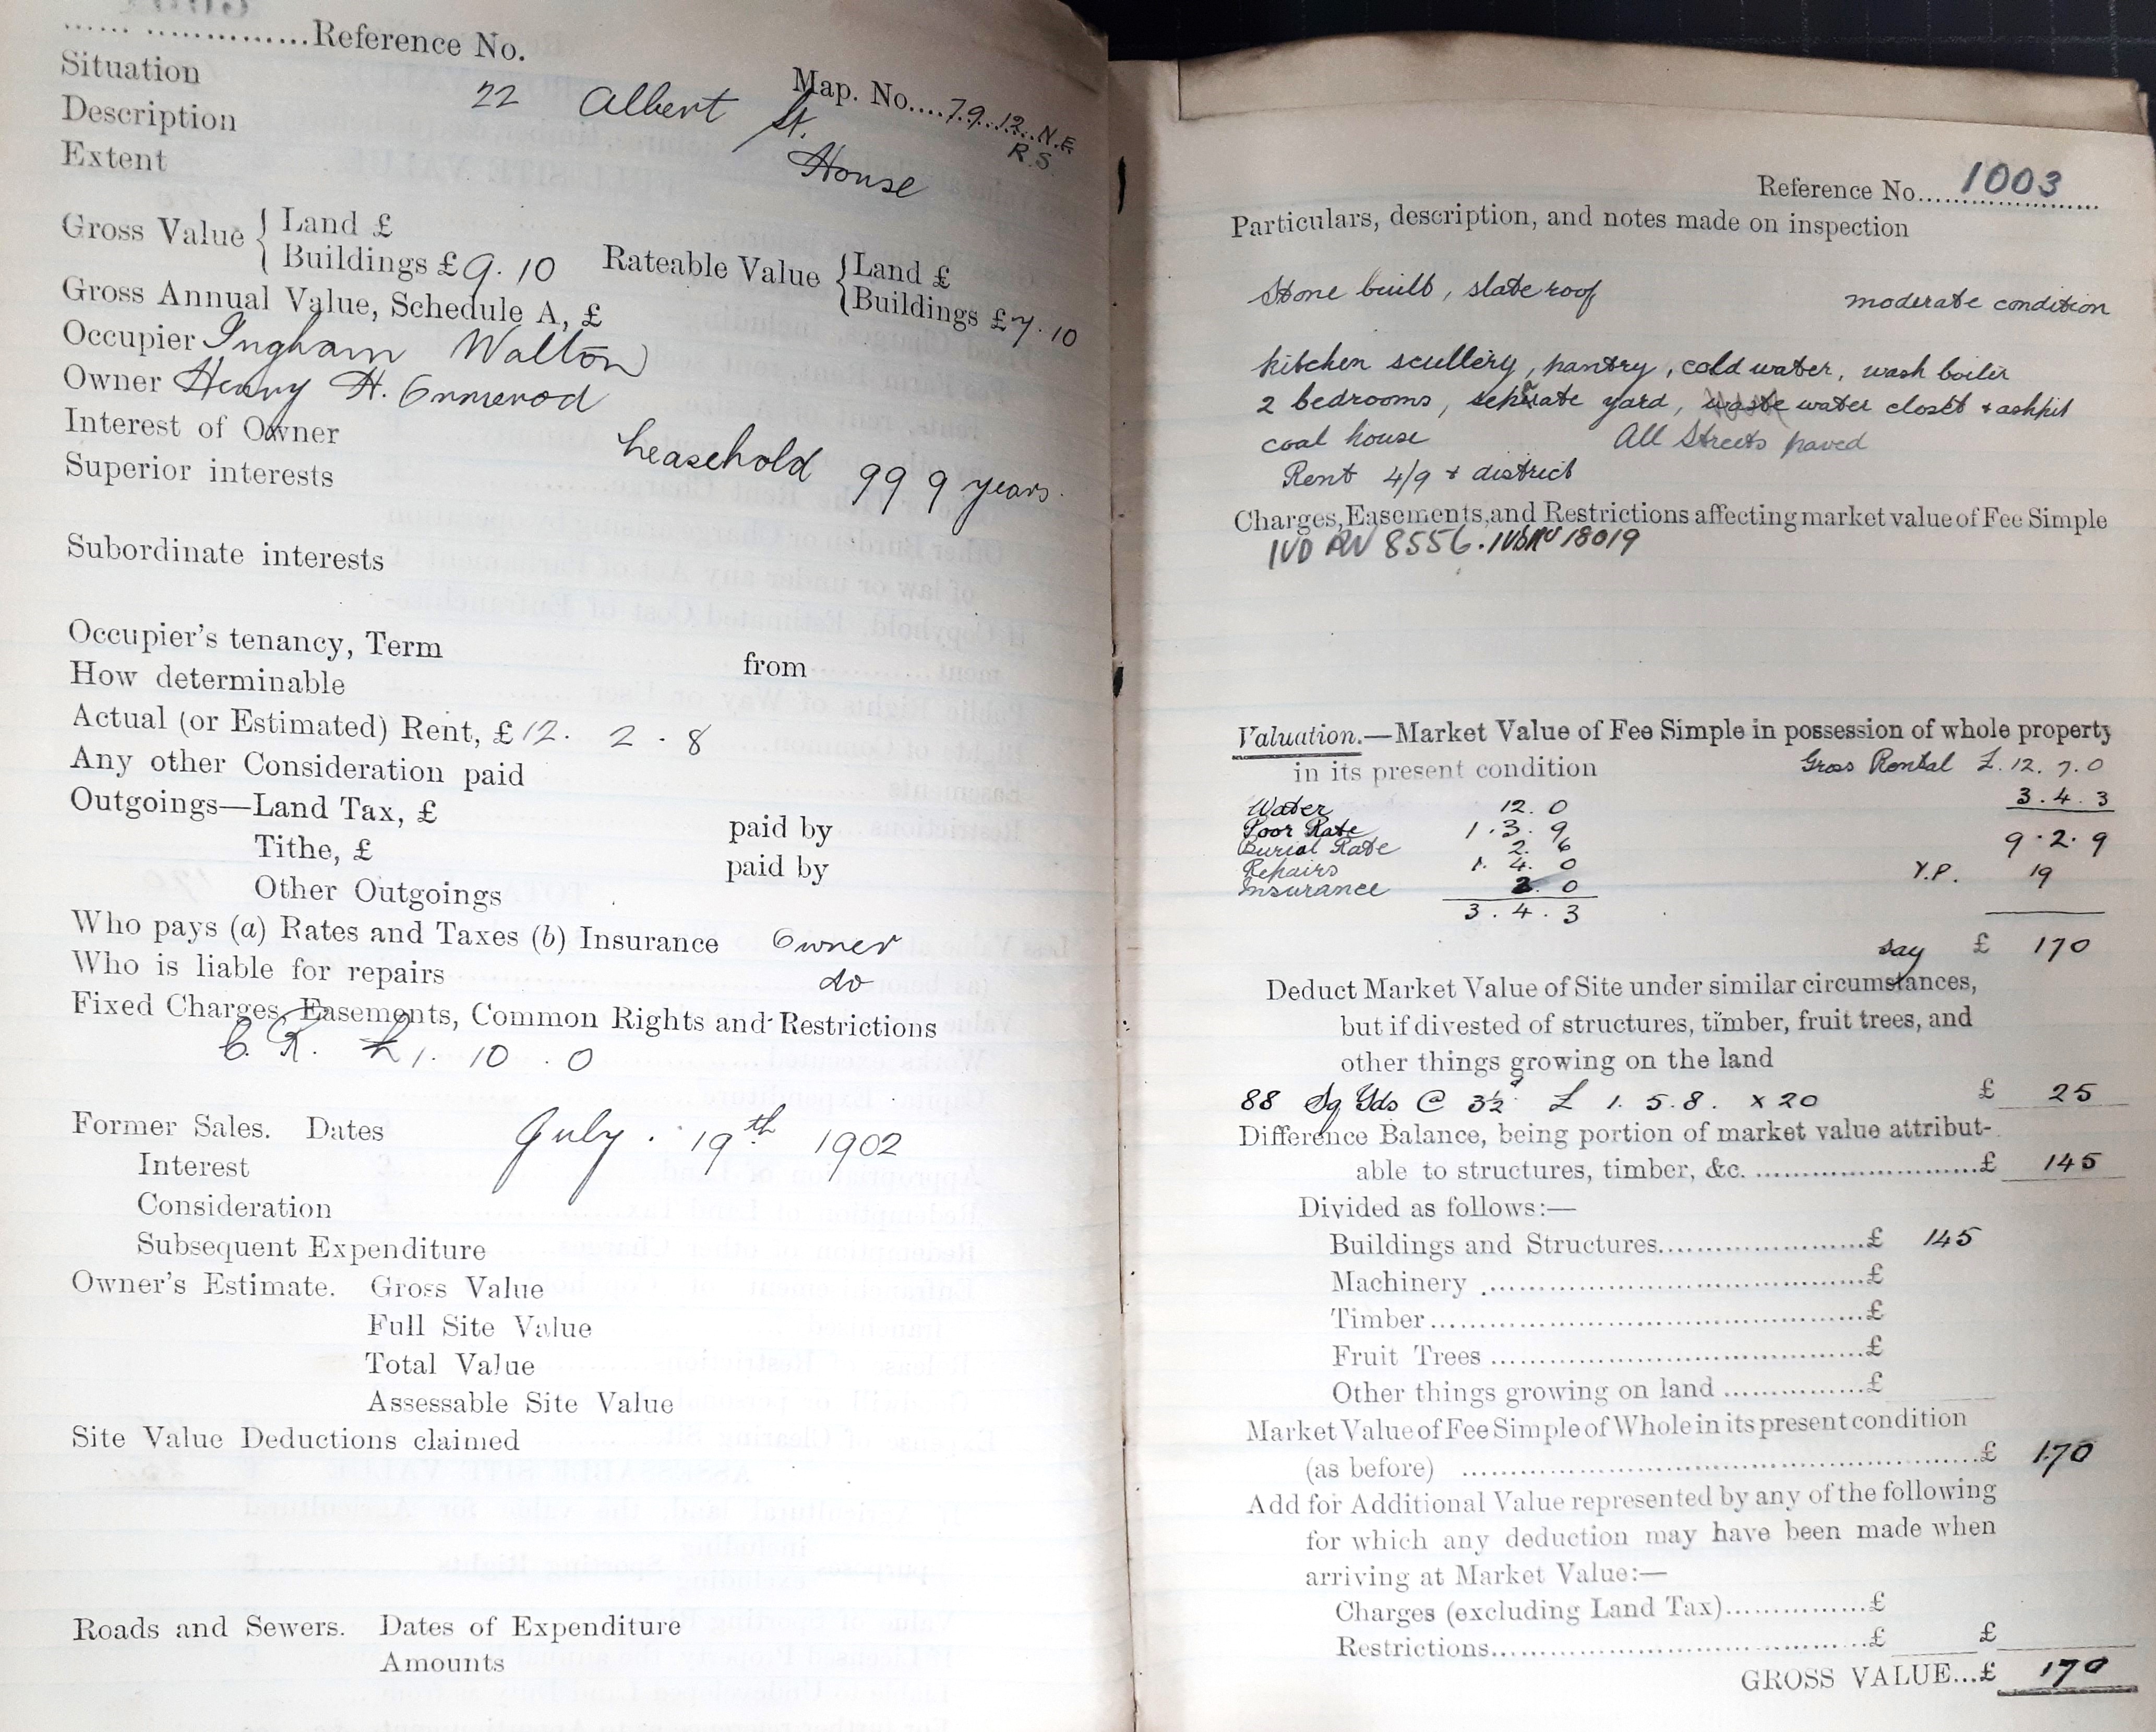 Reference No.
Map. No....79.12.N.E
R.S.
Situation 22 Albert St.
Description House
Extent
Gross Value { Land £
Buildings £ 9.10 Rateable Value { Land £
Buildings £ 7.10
Gross Annual Value, Schedule A, £
Occupier Ingham Walton
Owner Henry H. Ormerod
Interest of Owner Leasehold 999 years.
Superior interests
Subordinate interests
Occupier's tenancy, Term from
How determinable
Actual (or Estimated) Rent, £ 12. 2. 8
Any other Consideration paid
Outgoings—Land Tax, £ paid by
Tithe, £ paid by
Other Outgoings
Who pays (a) Rates and Taxes (b) Insurance Owner
Who is liable for repairs do
Fixed Charges, Easements, Common Rights and Restrictions
C. R. £1. 10. 0
Former Sales. Dates July. 19th 1902
Interest
Consideration
Subsequent Expenditure
Owner's Estimate. Gross Value
Full Site Value
Total Value
Assessable Site Value
Site Value Deductions claimed
Roads and Sewers. Dates of Expenditure
Amounts
Reference No. 1003
Particulars, description, and notes made on inspection
Stone built, slate roof moderate condition
kitchen scullery, pantry, cold water, wash boiler
2 bedrooms, separate yard, waste water closet + ashpit
coal house All Streets paved
Rent 4/9 + district
Charges, Easements, and Restrictions affecting market value of Fee Simple
IVD 8556. 18019
Valuation.—Market Value of Fee Simple in possession of whole property
in its present condition Gross Rental £.12.7.0
Water 12.0 3.4.3
Poor Rate 1.3.9 9.2.9
Burial Rate 2.6
Repairs 1.4.0 Y.P. 19
Insurance 2.0
3.4.3
say £ 170
Deduct Market Value of Site under similar circumstances,
but if divested of structures, timber, fruit trees, and
other things growing on the land
88 Sq Yds @ 3½d £ 1.5.8. x 20 £ 25
Difference Balance, being portion of market value attribut-
able to structures, timber, &c. ........................£ 145
Divided as follows:—
Buildings and Structures........................£ 145
Machinery ........................£
Timber........................£
Fruit Trees ........................£
Other things growing on land ................£
Market Value of Fee Simple of Whole in its present condition
(as before) ........................£ 170
Add for Additional Value represented by any of the following
for which any deduction may have been made when
arriving at Market Value:—
Charges (excluding Land Tax)................£
Restrictions........................£ £
GROSS VALUE...£ 170